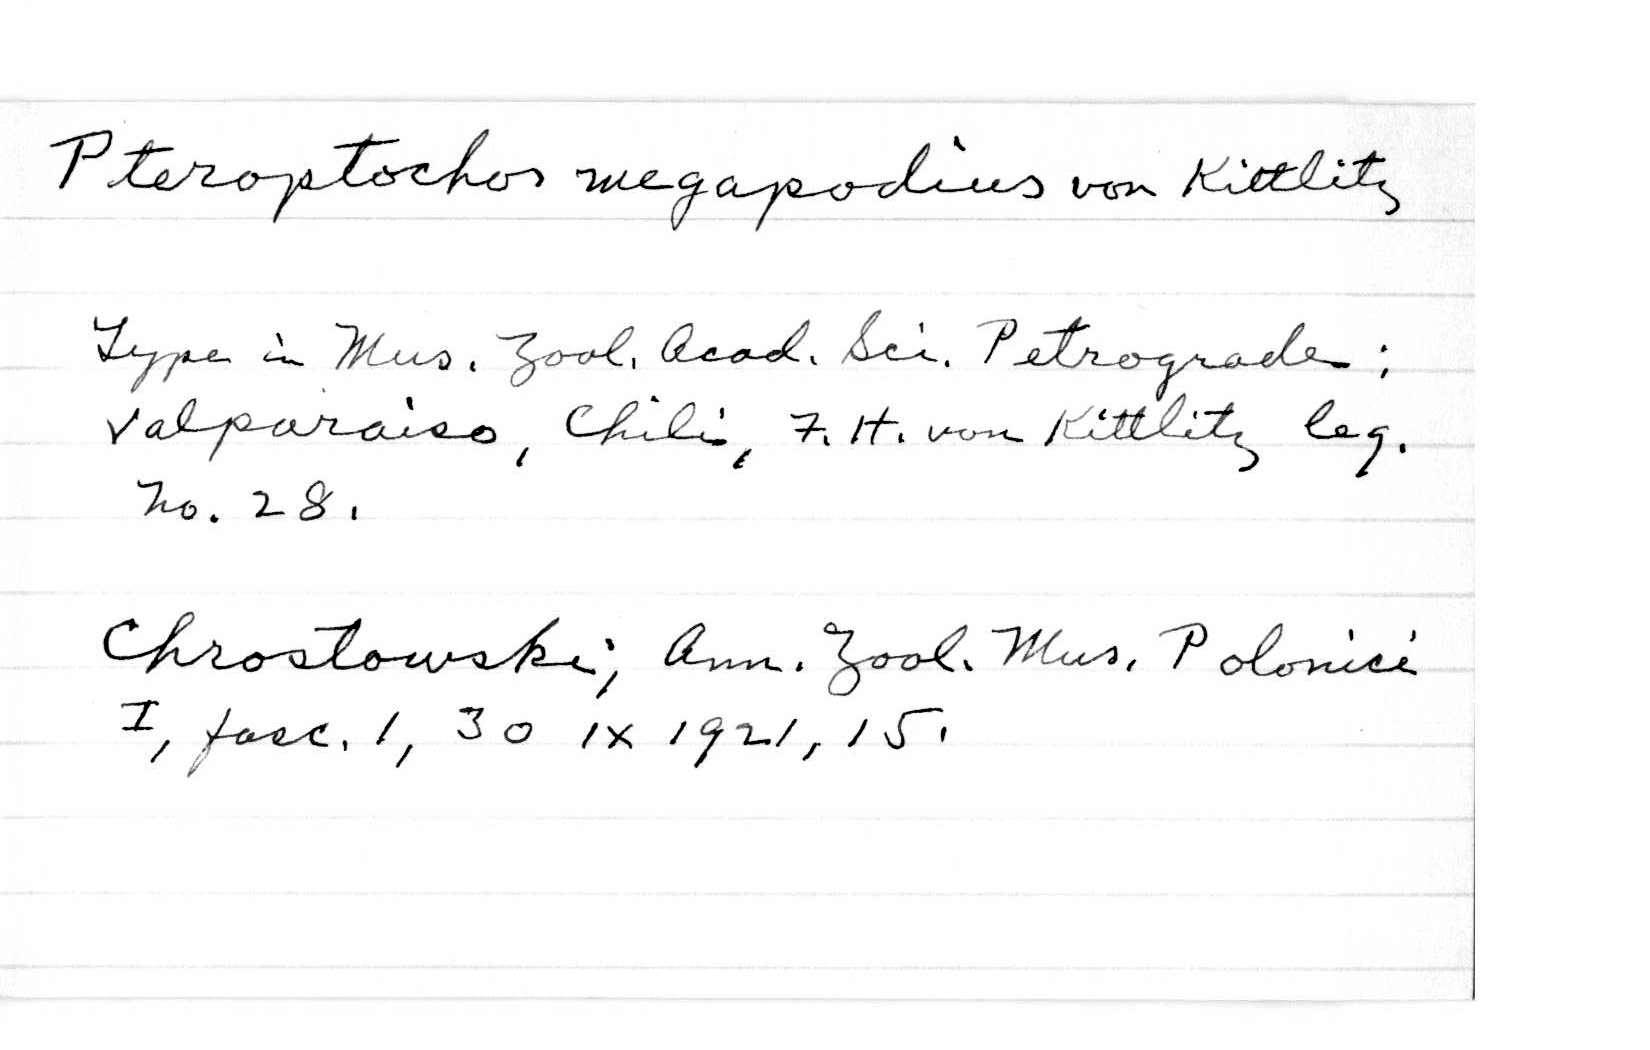 Pteroptochos megapodius von Kittlitz
Type in Mus. Zool. Acad. Sci. Petrograde;
Valparaiso, Chili, F. H. von Kittlitz leg.
No. 28.
Chrostowski, Ann. Zool. Mus. Polonici
I, fasc. 1, 30 IX 1921, 15.